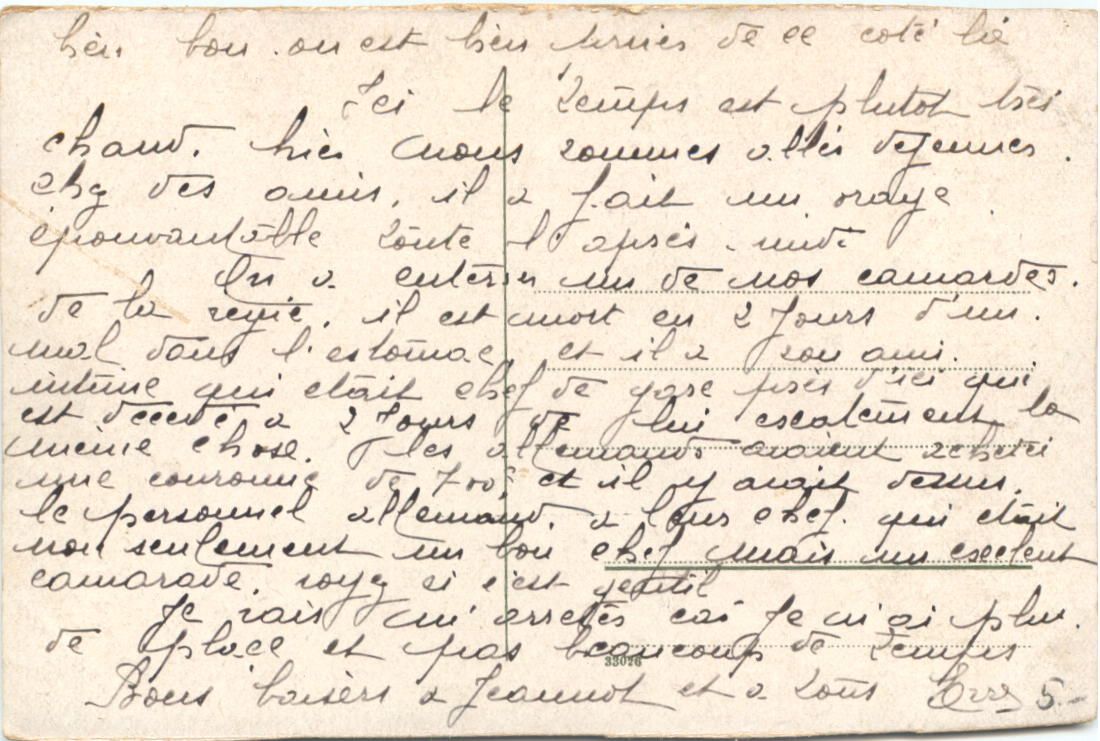 bien bon. on est bien servies de ce coté là
Ici le temps est plutot très
chaud. hier nous sommes allés dejeuner.
chez des amis, il a fait un orage
épouvantable toute l'après-midi
On a enterré un de nos camardes.
de la regie. il est mort en 2 Jours d'un.
mal dans l'estomac, et il a son ami.
intime qui était chef de gare près d'ici qui
est décédé a 2 Jours de lui exatement la
meme chose. les allemands avaient acheté
une couronne de 700f et il y avait dessus.
le personnel allemand. a leur chef. qui était
non seulement un bon chef mais un exelent
camarade. voyez si c'est gentil
Je vais m'arreter car Je n'ai plus.
de place et pas beaucoup de temps
33026
Bons baisers a Jeannot et a tous
5.-